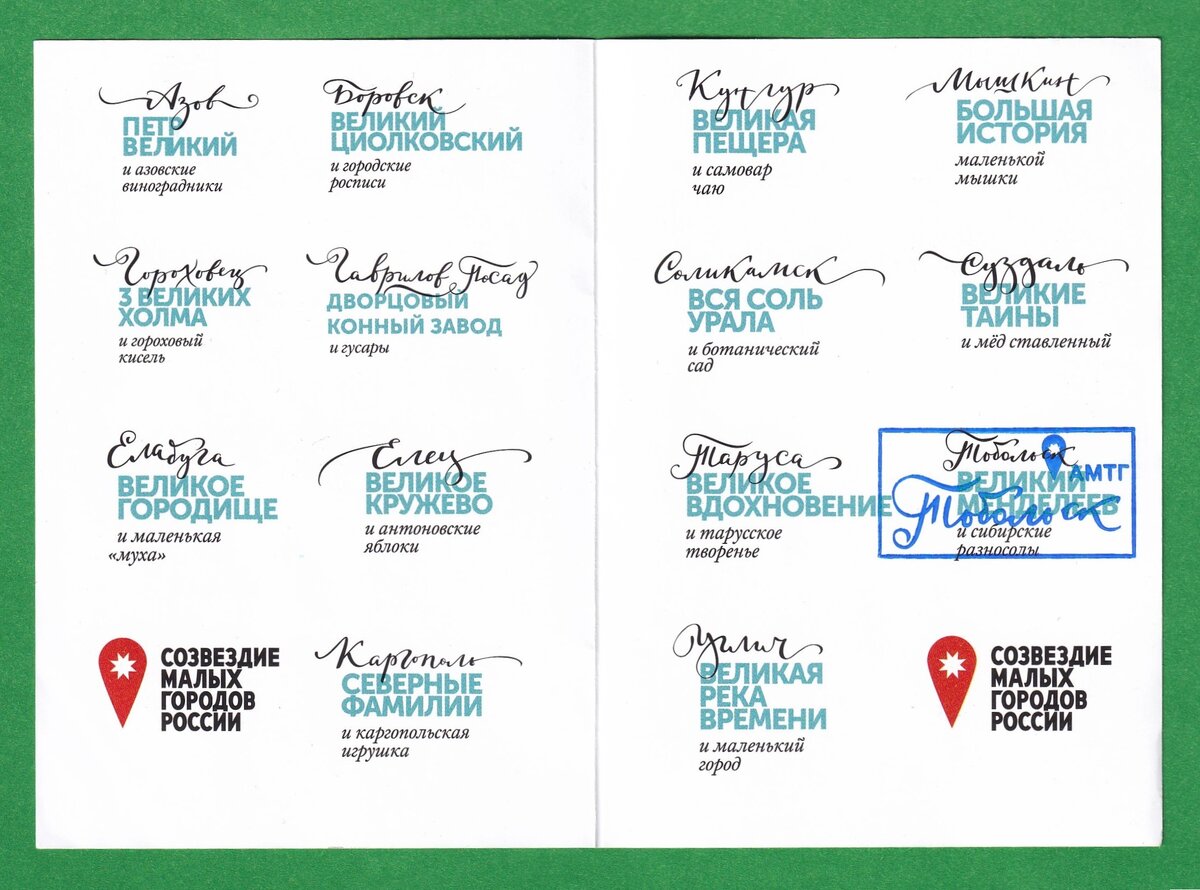 Азов
ПЕТР
ВЕЛИКИЙ
и азовские
виноградники
Боровск
ВЕЛИКИЙ
ЦИОЛКОВСКИЙ
и городские
росписи
Гороховец
3 ВЕЛИКИХ
ХОЛМА
и гороховый
кисель
Гаврилов Посад
ДВОРЦОВЫЙ
КОННЫЙ ЗАВОД
и гусары
Елабуга
ВЕЛИКОЕ
ГОРОДИЩЕ
и маленькая
«муха»
Елец
ВЕЛИКОЕ
КРУЖЕВО
и антоновские
яблоки
СОЗВЕЗДИЕ
МАЛЫХ
ГОРОДОВ
РОССИИ
Каргополь
СЕВЕРНЫЕ
ФАМИЛИИ
и каргопольская
игрушка
Кунгур
ВЕЛИКАЯ
ПЕЩЕРА
и самовар
чаю
Мышкин
БОЛЬШАЯ
ИСТОРИЯ
маленькой
мышки
Соликамск
ВСЯ СОЛЬ
УРАЛА
и ботанический
сад
Суздаль
ВЕЛИКИЕ
ТАЙНЫ
и мёд ставленный
Таруса
ВЕЛИКОЕ
ВДОХНОВЕНИЕ
и тарусское
творенье
Тобольск
ВЕЛИКИЙ
МЕНДЕЛЕЕВ
и сибирские
разносолы
АМТГ
Тобольск
Углич
ВЕЛИКАЯ
РЕКА
ВРЕМЕНИ
и маленький
город
СОЗВЕЗДИЕ
МАЛЫХ
ГОРОДОВ
РОССИИ